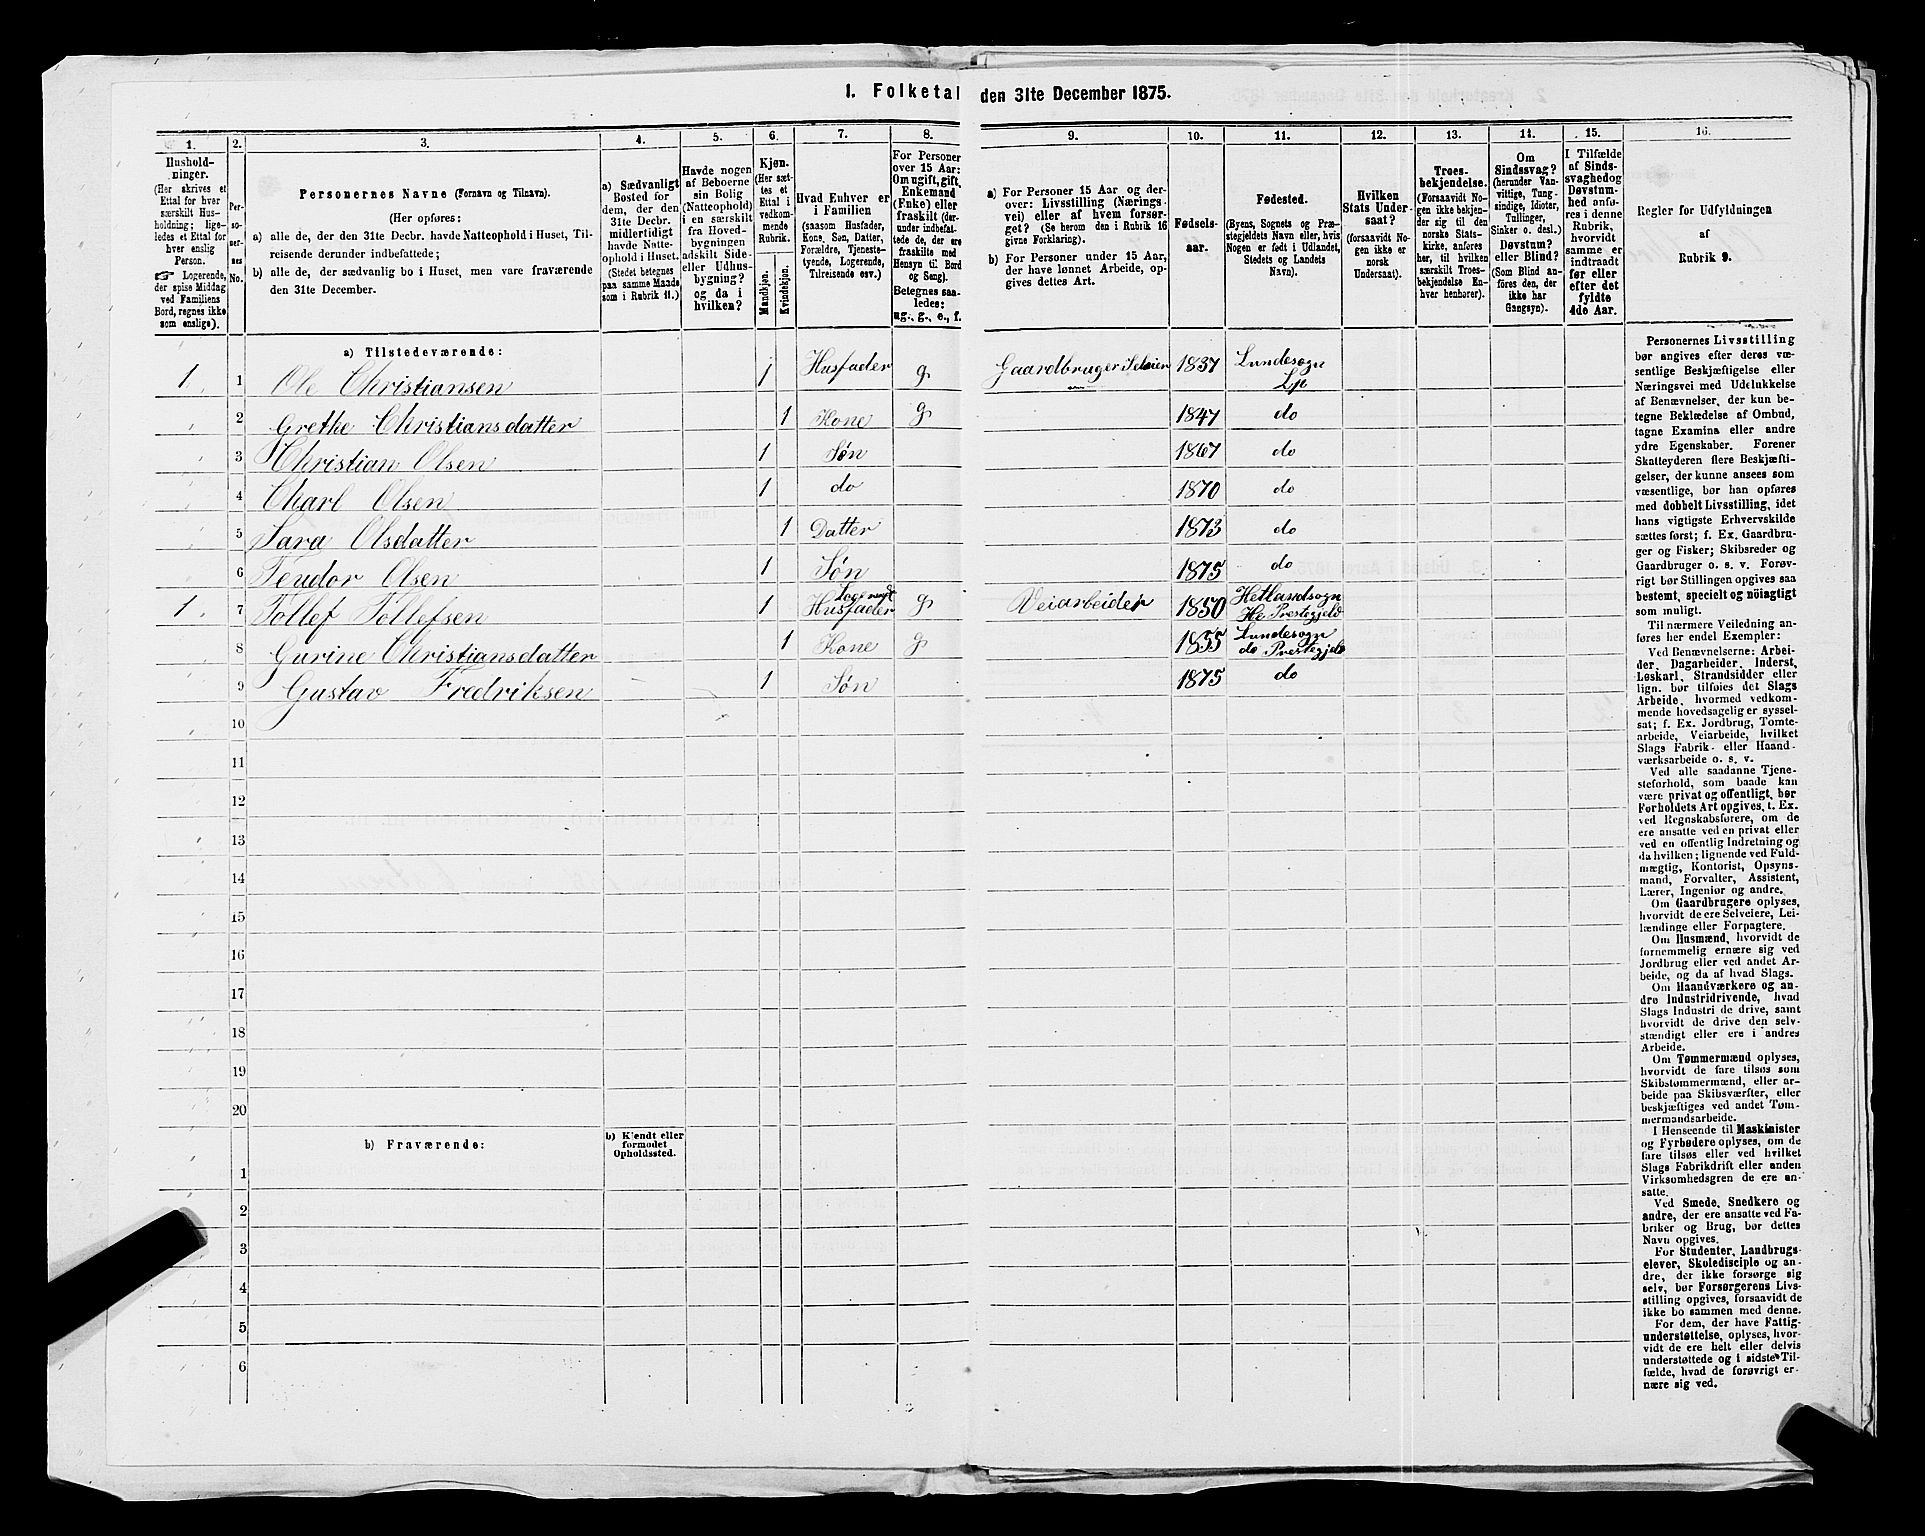 1. Folketal den 31te December 1875.
1. 2. 3. 4. 5. 6. 7. 8. 9. 10. 11. 12. 13. 14. 15. 16.
Hushold-
ninger.
(Her skrives et
Ettal for hver
særskilt Hus-
holdning; lige-
ledes et Ettal for
hver enslig
Person.
☞ Logerende,
der spise Middag
ved Familiens
Bord, regnes ikke
som enslige).
Per-
so-
ner-
nes
No.
Personernes Navne (Fornavn og Tilnavn).
(Her opføres:
a) alle de, der den 31te Decbr. havde Natteophold i Huset, Til-
reisende derunder indbefattede;
b) alle de, der sædvanlig bo i Huset, men vare fraværende
den 31te December.
a) Sædvanligt
Bosted for
dem, der den
31te Decbr.
midlertidigt
havde Natte-
ophold i Huset.
(Stedet betegnes
paa samme Maade
som i Rubrik 11.)
Havde nogen
af Beboerne
sin Bolig
(Natteophold)
i en særskilt
fra Hoved-
bygningen
adskilt Side-
eller Udhus-
bygning?
og da i
hvilken?
Kjøn.
(Her sæt-
tes et
Ettal i
vedkom-
mende
Rubrik.
Mandkjøn.
Kvindekjøn.
Hvad Enhver er
i Familien
(saasom Husfader,
Kone, Søn, Datter,
Forældre, Tjeneste-
tyende, Logerende,
Tilreisende osv.)
For Personer
over 15 Aar:
Om ugift, gift,
Enkemand
(Enke) eller
fraskilt (der-
under indbefat-
tede de, der ere
fraskilte med
Hensyn til Bord
og Seng).
Betegnes saa-
ledes:
ug., g., e., f.
a) For Personer 15 Aar og der-
over: Livsstilling (Nærings-
vei) eller af hvem forsør-
get? (Se herom den i Rubrik 16
givne Forklaring).
b) For Personer under 15 Aar,
der have lønnet Arbeide, op-
gives dettes Art.
Fødsels-
aar.
Fødested.
(Byens, Sognets og Præ-
stegjeldets Navn eller, hvis
Nogen er født i Udlandet,
Stedets og Landets
Navn).
Hvilken
Stats Under-
saat?
(forsaavidt No-
gen ikke er
norsk
Undersaat).
Troes-
bekjendelse.
(Forsaavidt No-
gen ikke bekjen-
der sig til den
norske Stats-
kirke, anføres
her, til hvilken
særskilt Troes-
bekjendelse En-
hver henhører).
Om
Sindssvag?
(herunder Van-
vittige, Tung-
sindige, Idioter,
Tullinger,
Sinker o. desl.)
Døvstum?
eller Blind?
(Som Blind an-
føres den, der
ikke har
Gangsyn).
I Tilfælde
af Sinds-
svaghed og
Døvstum-
hed anfø-
res i denne
Rubrik,
hvorvidt
samme er
indtraadt
før eller
efter det
fyldte
4de Aar.
Regler for Udfyldningen
af
Rubrik 9.
a) Tilstedeværende:
1. 1 Ole Christiansen 1 Husfader g. Gaardbruger Seleier 1837 Lundesogn Lp
2 Grethe Christiansdatter 1 Kone g. 1847 do
3 Christian Olsen 1 Søn 1867 do
4 Charl Olsen 1 do 1870 do
5 Sara Olsdatter 1 Datter 1873 do
6 Teudor Olsen 1 Søn 1875 do
1. 7 Tollef Tollefsen 1 Husfader g. Veiarbeider 1850 Hetlandsogn He. Prestegjeld
8 Gurine Christiansdatter 1 Kone g 1855 Lundesogn do Prestegjeld
9 Gustav Fredriksen 1 Søn 1875 do
10
11
12
13
14
15
16
17
18
19
20
b) Fraværende:
b) Kjendt eller
formodet
Opholdssted.
1
2
3
4
5
6
Personernes Livsstilling
bør angives efter deres væ-
sentlige Beskjæftigelse eller
Næringsvei med Udelukkelse
af Benævnelser, der kun be-
tegne Beklædelse af Ombud,
tagne Examina eller andre
ydre Egenskaber. Forener
Skatteyderen flere Beskjæfti-
gelser, der kunne ansees som
væsentlige, bør han opføres
med dobbelt Livsstilling, idet
hans vigtigste Erhvervskilde
sættes først; f. Ex. Gaardbru-
ger og Fisker; Skibsreder og
Gaardbruger o. s. v. Forøv-
rigt bør Stillingen opgives saa
bestemt, specielt og nøiagtigt
som muligt.
Til nærmere Veiledning an-
føres her endel Exempler:
Ved Benævnelserne: Arbei-
der, Dagarbeider, Inderst,
Løskarl, Strandsidder eller
lign. bør tilføies det Slags
Arbeide, hvormed vedkom-
mende hovedsagelig er syssel-
sat; f. Ex. Jordbrug, Tomte-
arbeide, Veiarbeide, hvilket
Slags Fabrik- eller Haand-
værksarbeide o. s. v.
Ved alle saadanne Tjene-
steforhold, som baade kan
være privat og offentligt, bør
Forholdets Art opgives, t. Ex.
ved Regnskabsførere, om de
ere ansatte ved en privat eller
ved en offentlig Indretning og
da hvilken; lignende ved Fuld-
mægtig, Kontorist, Opsyns-
mand, Forvalter, Assistent,
Lærer, Ingeniør og andre.
Om Gaardbrugere oplyses,
hvorvidt de ere Selveiere, Lei-
lændinge eller Forpagtere.
Om Husmænd, hvorvidt de
fornemmelig ernære sig ved
Jordbrug eller ved andet Ar-
beide, og da af hvad Slags.
Om Haandværkere og an-
dre Industridrivende, hvad
Slags Industri de drive, samt
hvorvidt de drive den selv-
stændigt eller ere i andres
Arbeide.
Om Tømmermænd oplyses,
hvorvidt de fare tilsøs som
Skibstømmermænd, eller ar-
beide paa Skibsværfter, eller
beskjæftiges ved andet Tøm-
mermandsarbeide.
I Henseende til Maskinister
og Fyrbødere oplyses, om de
fare tilsøs eller ved hvilket
Slags Fabrikdrift eller anden
Virksomhedsgren de ere an-
satte.
Ved Smede, Snedkere og
andre, der ere ansatte ved Fa-
briker og Brug, bør dettes
Navn opgives.
For Studenter, Landbrugs-
elever, Skoledisciple og an-
dre, der ikke forsørge sig
selv, bør Forsørgerens Livs-
stilling opgives, forsaavidt de
ikke bo sammen med denne.
For dem, der have Fattig-
understøttelse, oplyses, hvor-
vidt de ere helt eller delvis
understøttede og i sidste Til-
fælde, hvad de forøvrigt er-
nære sig ved.